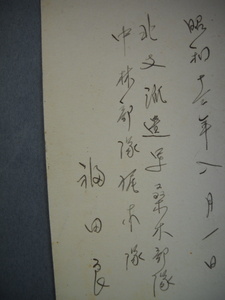 昭和十二年八月一日
北支派遣軍桑木部隊
中林部隊梶木隊
福田良